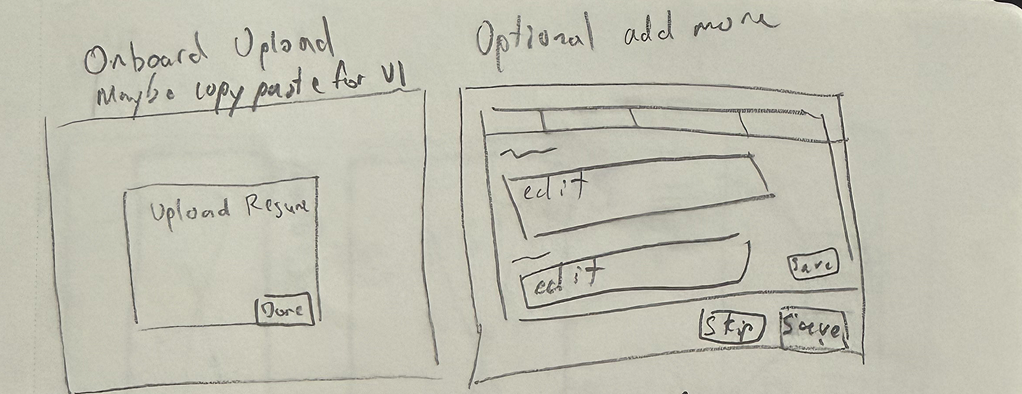 Onboard Upload
Maybe copy paste for V1
Upload Resume
Done
Optional add more
edit
edit
Save
Skip
Save